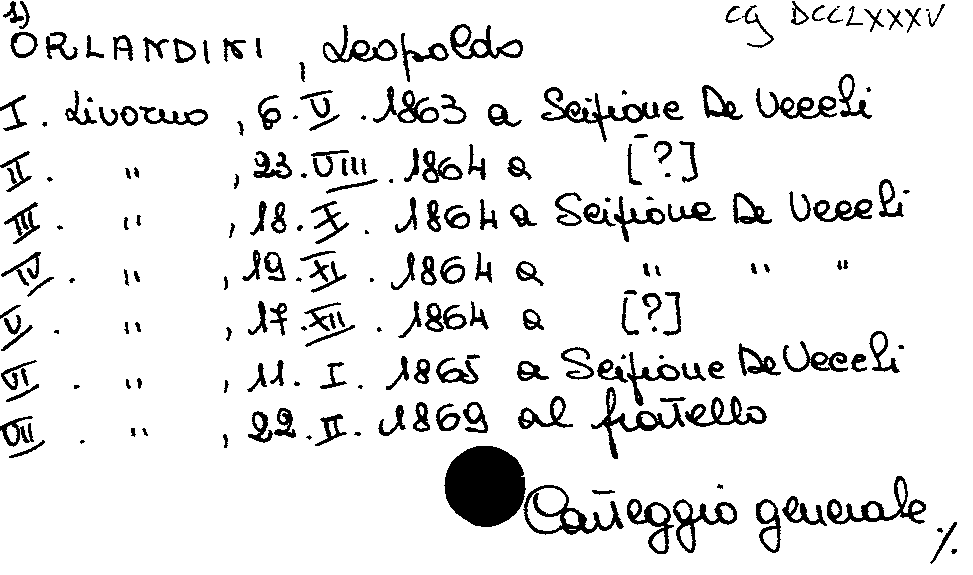 1) CG DCCLXXXV
ORLANDINI, Leopoldo
I. Livorno, 6.V.1863 a Scipione De Vecchi
II. " , 23.VIII.1864 a [?]
III. " , 18.X.1864 a Scipione De Vecchi
IV. " , 19.XI.1864 a " " "
V. " , 17.XII.1864 a [?]
VI. " , 11.I.1865 a Scipione De Vecchi
VII. " , 22.II.1869 al fratello
Carteggio generale ./.